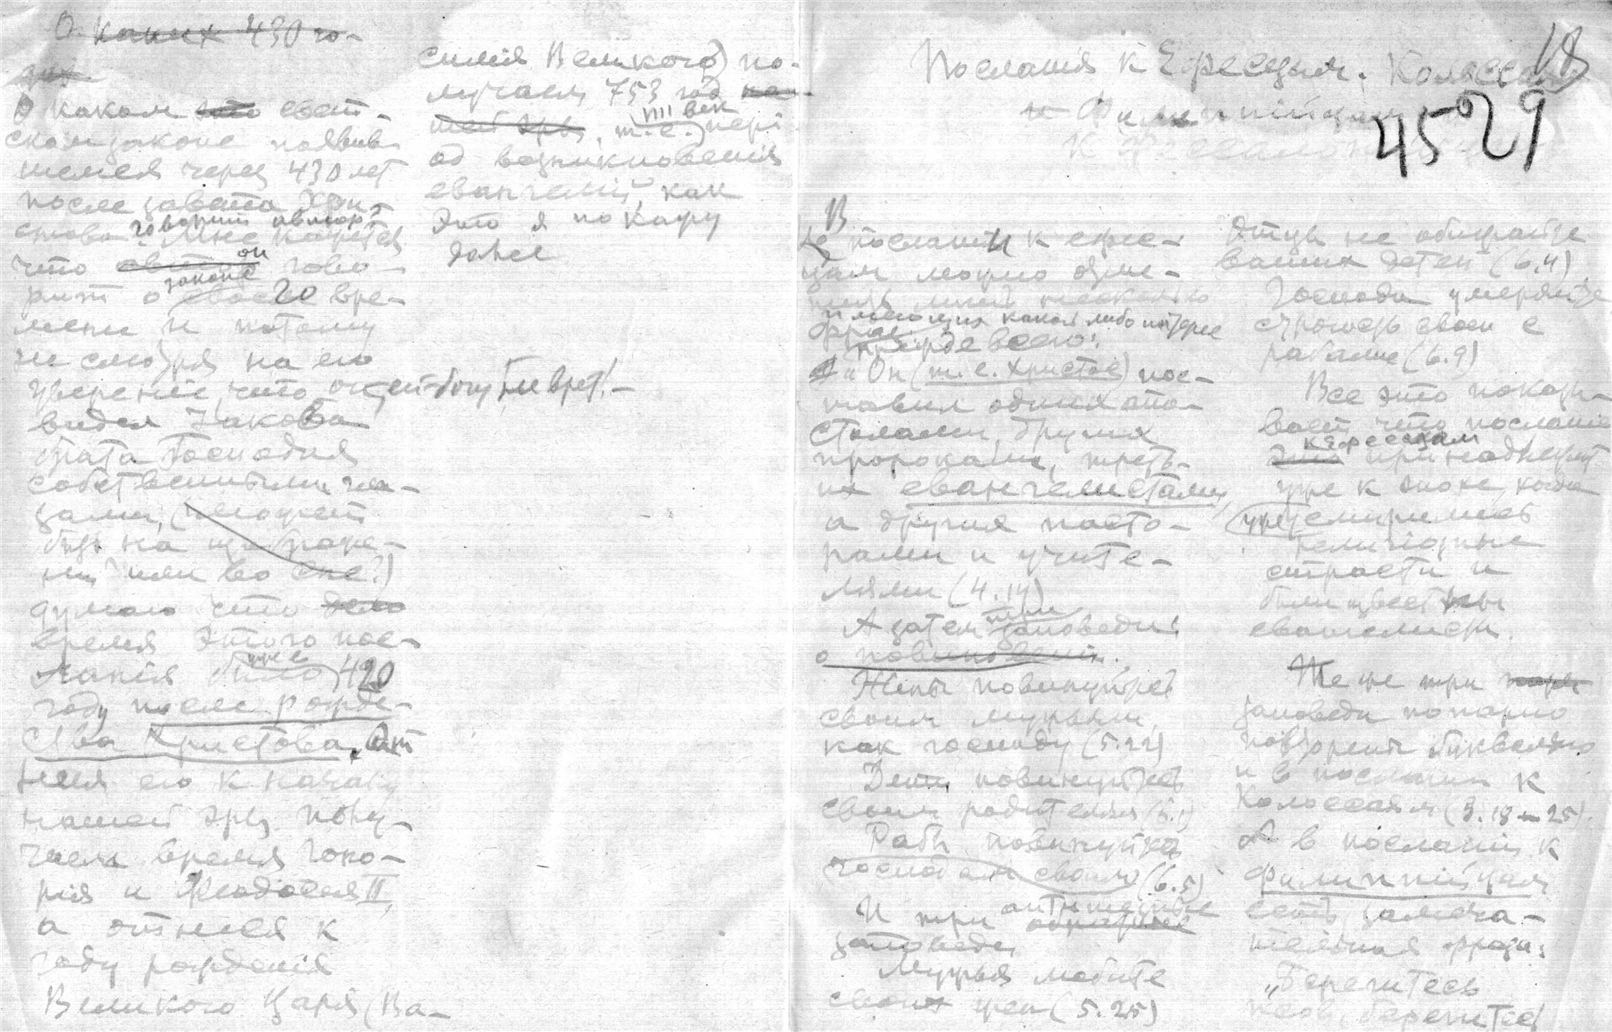 О каких 430 го-
дах
О каком это свет-
ском законе появив-
шемся через 430 лет
после завета Хри-
стова говорит автор?
Мне кажется
что он гово-
рит о законе своего вре-
мени и потому
не смотря на его
уверение, что он, ей-богу не врет! –
видел Иакова
брата Господня
собственными гла-
зами, (не
на изображе-
нии или во сне?)
думаю что дело
время этого пос-
лания было уже 420
году после рожде-
ства Христова. От
неся его к началу
нашей эры полу-
чаем время Гоно-
рия и Феодосия II,
а отнеся к
году рождения
Великого Царя (Ва-
силия Великого) по-
лучаем 753 год на-
шей эры, т.е. VIII век пери
од возникновения
евангелий, как
это я покажу
далее
18
Послания к Ефесеям. Колоссаям
и Филиппийцам
К Фессалони
4529
В послании к ефе-
сеям можно отме-
тить лишь несколько
имеющих какой либо интерес
фраз.
Прежде всего:
„Он (т.е. Христос) пос-
тавил одних апо-
столами, других
пророками, треть-
их евангелистами,
а других пасто-
рами и учите-
лями (4.14)
А затем три заповеди:
о повиновении.
Жены повинуйтесь
своим мужьям,
как господу (5.22)
Дети, повинуйтесь
своим родителям (6.1)
Рабы повинуйтесь
господам своим (6.5)
И три антитезные обратные
заповеди
Мужья любите
своих жен (5.25)
Отцы не
ваших детей (6.4)
Господа умеряйте
строгость свою с
рабами (6.9)
Все это показы-
вает, что послание
к Ефесеям
это принадлежит
уже к эпохе, когда
уже смирились
религиозные
страсти и
были известны
евангелисты.
Те же три пары
заповеди попарно
повторены буквально
и в послании к
Колоссаям (3.18–25).
А в послании к
Филиппийцам
есть замеча-
тельная фраза:
„Берегитесь
псов, берегитесь